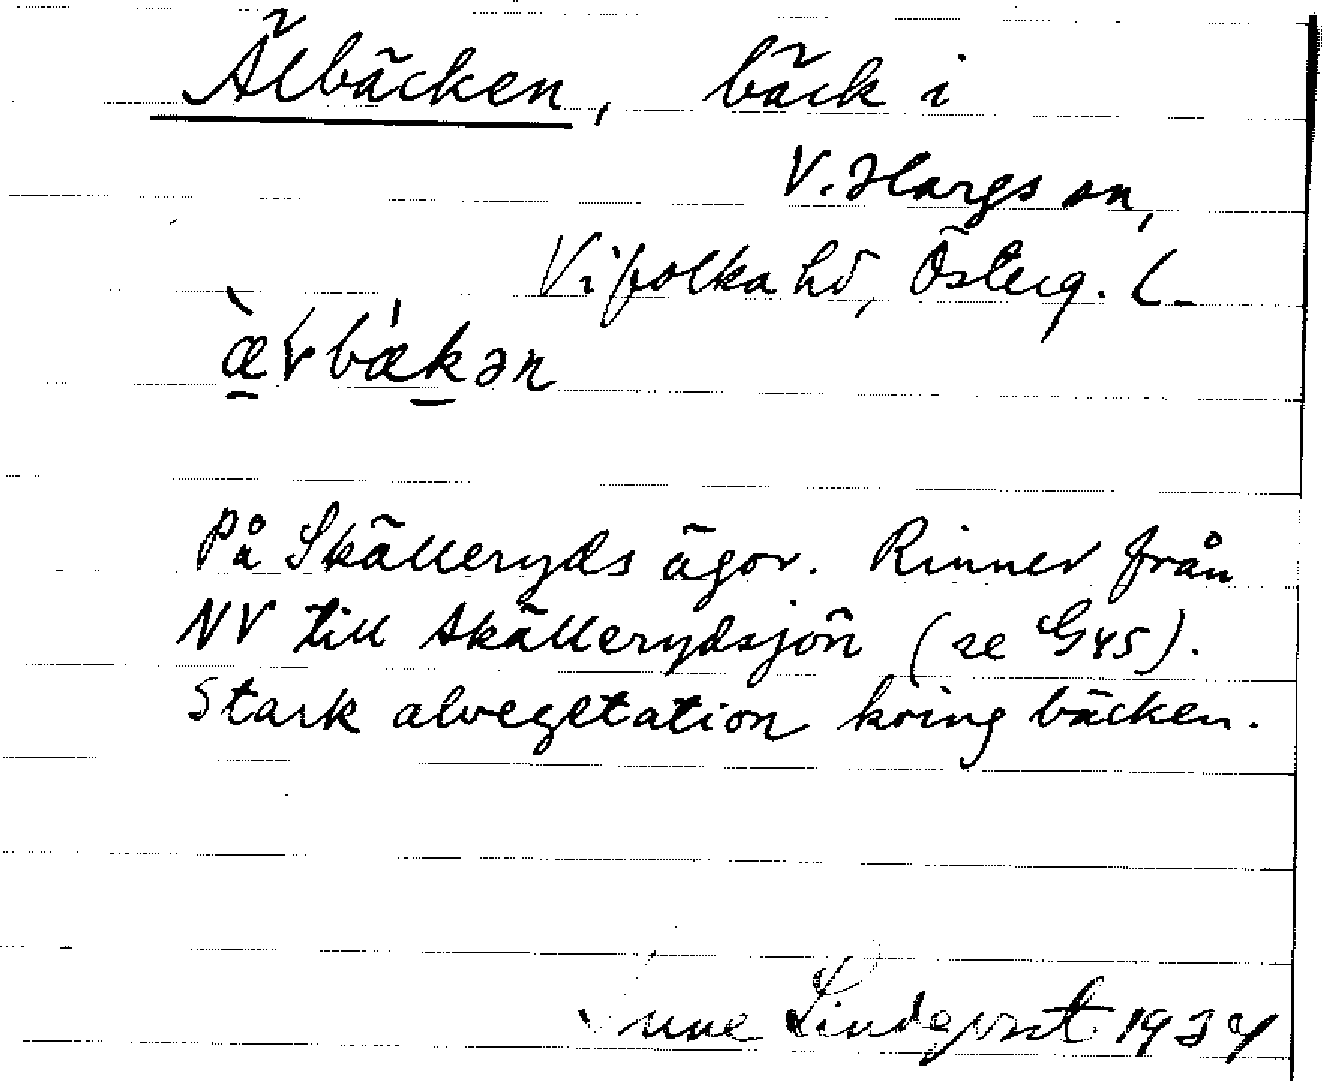 Älbäcken, bäck i
V. Hargs sn,
Vifolka hd, Österg. L.
æ̀ɽbækən
På Skälleryds ägor. Rinner från
NV till Skällerydsjön (se G45).
Stark alvegetation kring bäcken.
Sune Lindqvist 1934